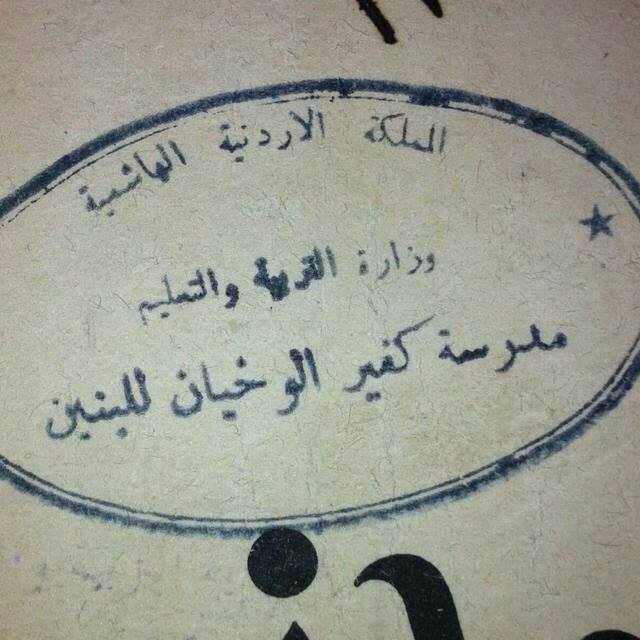 المملكة الاردنية الهاشمية
وزارة التربية والتعليم
مدرسة كفير الوخيان للبنين